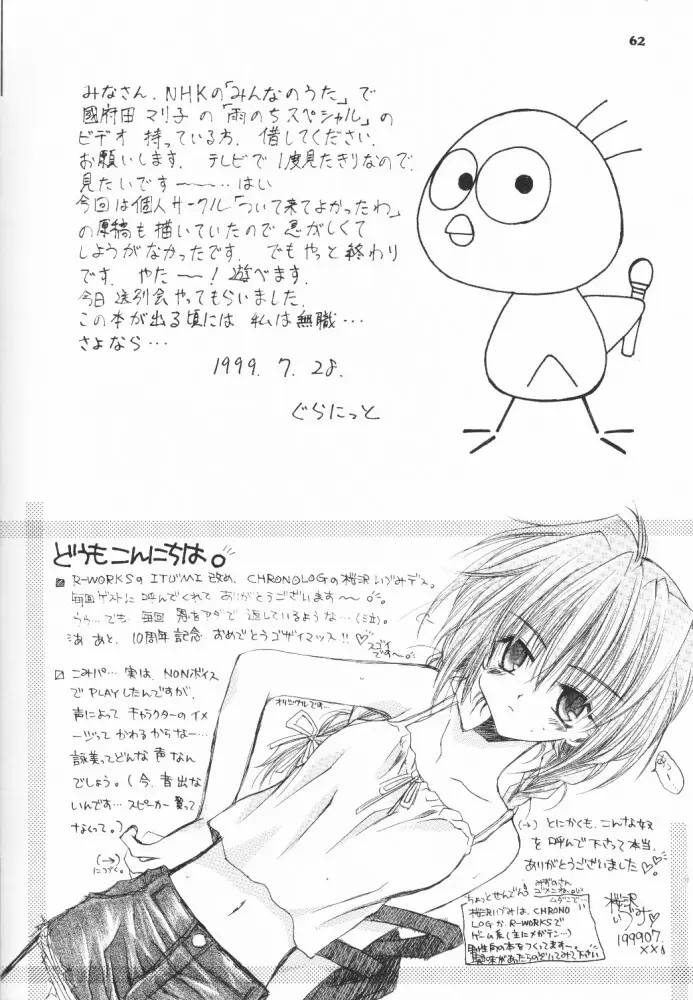 62
みなさん、NHKの「みんなのうた」で
國府田マリ子の「雨のちスペシャル」の
ビデオ 持っている方、借してください。
お願いします。 テレビで1度見たきりなので、
見たいです〜〜… はい
今回は個人サークル「ついて来てよかったわ」
の原稿も描いていたので 忍がしくて
しようがなかったです。 でもやっと終わり
です。 やた〜〜! 遊べます。
今日 送別会やってもらいました。
この本が出る頃には 私は無職…
さよなら…
1999. 7. 28.
ぐらにっと
どうもこんにちは。
R-WORKSのITUMI改め、CHRONOLOGの桜沢いづみデス。
毎回ゲストに呼んでくれて ありがとうございます〜〜。
うぅ…でも、毎回 恩をアダで 返しているような…(泣)。
あ、あと、10周年記念 おめでとうゴザイマッス!!♡
スゴイで〜す。
こみパ… 実は、NONボイス
でPLAYしたんですが、
声によって キャラクターのイメ
ージって かわるからな…
詠美ってどんな声なん
でしょう。(今、音出な
いんです…スピーカー買って
なくって。)
(→)
につづく。
オリジナルです…
(→)とにかくも、こんな奴
を 呼んで下さって本当、
ありがとうございました♡♡
ちょっとせんでん!
桜沢いづみは、CHRONO
LOGか、R-WORKSで
ゲーム系(主にメガテン…)
男性向の本をつくってます〜。
桜沢
いづみ♡
199907.
××